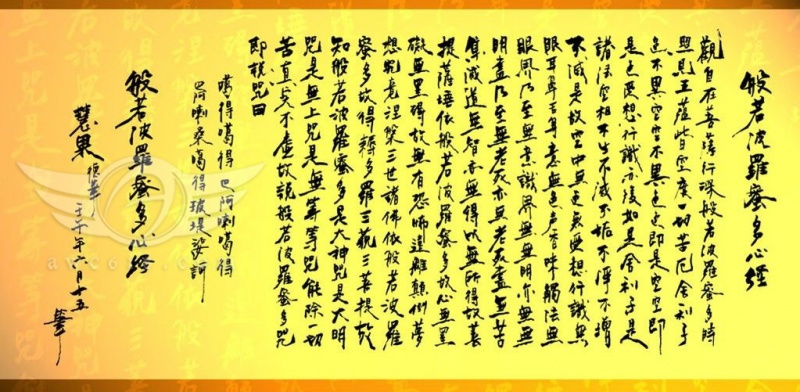 般若波羅蜜多心经
觀自在菩薩行深般若波羅蜜多時
照見五蘊皆空度一切苦厄舍利子
色不異空空不異色色即是空空即
是色受想行識亦復如是舍利子是
諸法空相不生不滅不垢不淨不增
不減是故空中無色無受想行識無
眼耳鼻舌身意無色声香味觸法無
眼界乃至無意識界無無明亦無無
明盡乃至無老死亦無老死盡無苦
集滅道無智亦無得以無所得故菩
提薩埵依般若波羅蜜多故心無罣
礙無罣礙故無有恐怖遠離顛倒夢
想究竟涅槃三世諸佛依般若波羅
蜜多故得耨多羅三藐三菩提故
知般若波羅蜜多是大神咒是大明
咒是無上咒是無等等咒能除一切
苦真实不虛故說般若波羅蜜多咒
即說咒曰
噶得噶得 巴阿喇噶得
巴阿喇桑噶得 玻堤娑訶
般若波羅蜜多心经
慧果
壬午年六月十五
華